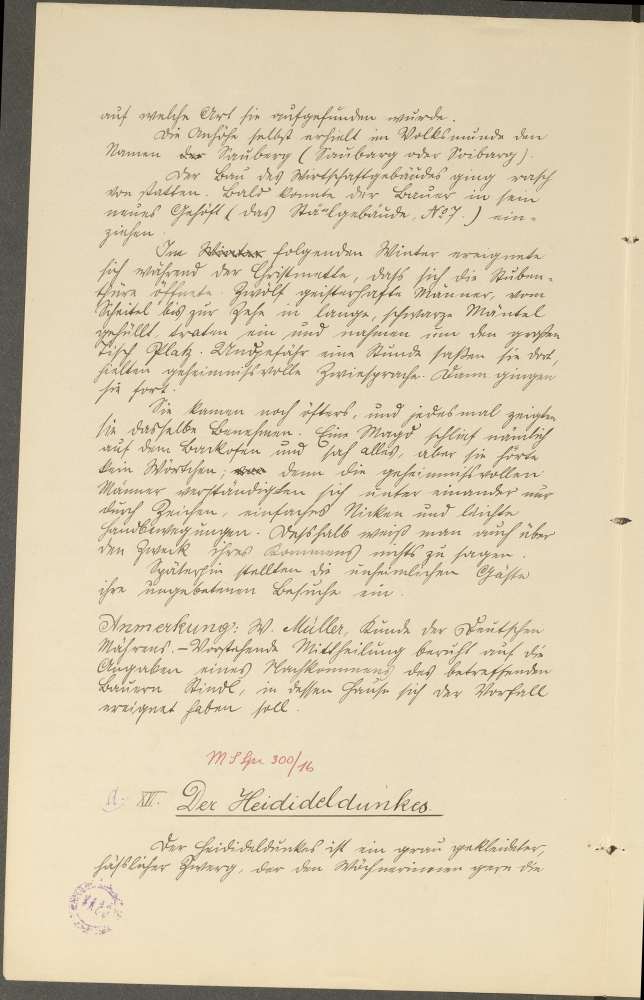 auf welche Art sie aufgefunden wurde.
Die Anhöhe selbst erhielt im Volksmunde den
Namen der Sauberg (Saubarg oder Soibarg).
Der Bau des Wirtschaftgebäudes ging rasch
von statten. Bald konnte der Bauer in sein
neues Gehöft (das Stallgebäude, №7.) ein-
ziehen.
Im Winter folgenden Winter ereignete
sich während der Christmette, daß sich die Stuben-
thüre öffnete. Zwölf geisterhafte Männer, vom
Scheitel bis zur Zehe in lange, schwarze Mäntel
gehüllt traten ein und nahmen um den großen
Tisch Platz. Ungefähr eine Stunde saßen sie dort,
hielten geheimnisvolle Zwiesprache. Dann gingen
sie fort.
Sie kamen noch öfters, und jedesmal zeigten
sie dasselbe Benehmen. Eine Magd schlief nämlich
auf dem Backofen und sah alles, aber sie hörte
kein Wörtchen, denn die geheimnisvollen
Männer verständigten sich unter einander nur
durch Zeichen, einfaches Nicken und leichte
Handbewegungen. Desshalb weiß man auch über
den Zweck ihres Kommens nichts zu sagen.
Späterhin stellten die unheimlichen Gäste
ihre ungebetenen Besuche ein.
Anmerkung: W. Müller, Kunde der Deutschen
Mährens. – Vorstehende Mittheilung beruht auf die
Angaben eines Nachkommens des betreffenden
Bauern Stindl, in dessen Hause sich der Vorfall
ereignet haben soll.
300/16
XII. Der Heidideldunkes.
Der Heidideldunkes ist ein grau gekleideter,
hässlicher Zwerg, der den Wöchnerinnen gern die